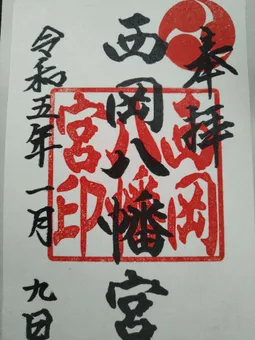 奉拝
西岡八幡宮
西岡八幡宮印
令和五年一月九日